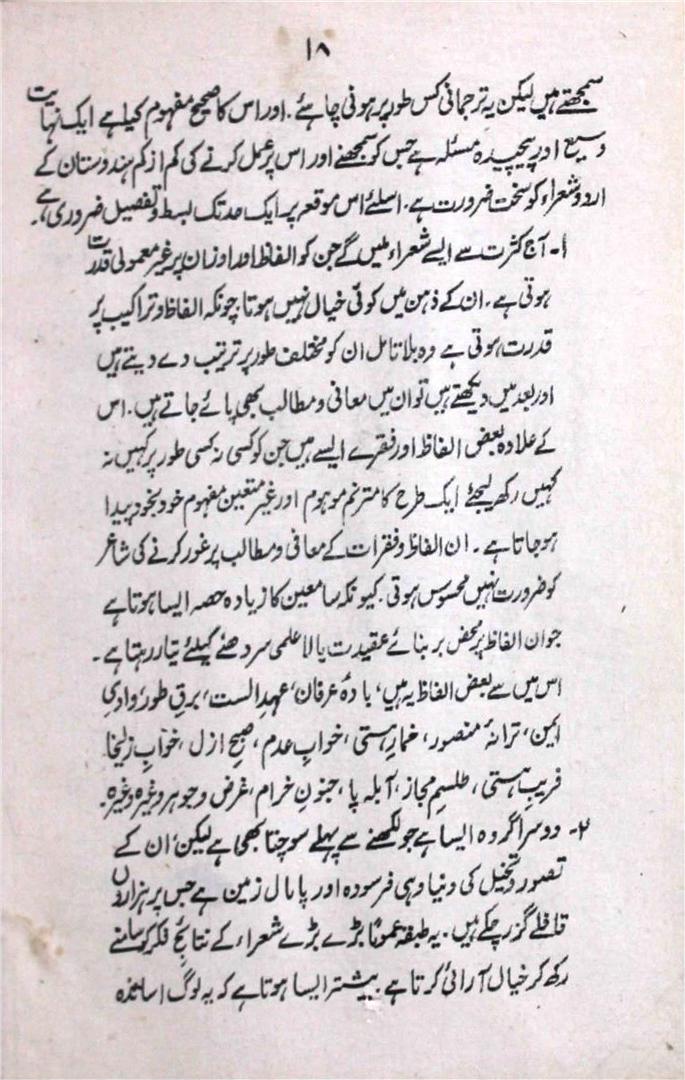 ۱۸
سمجھتے ہیں لیکن یہ ترجمانی کس طور پر ہونی چاہئے۔ اور اس کا صحیح مفہوم کیا ہے ایک نہایت
وسیع اور پیچیدہ مسئلہ ہے جس کو سمجھنے اور اس پر عمل کرنے کی کم از کم ہندوستان کے
اردو شعراء کو سخت ضرورت ہے۔ اسلئے اس موقعہ پر ایک حد تک بسط و تفصیل ضروری ہے۔
۱- آج کثرت سے ایسے شعراء ملیں گے جن کو الفاظ اور اوزان پر غیر معمولی قدرت
ہوتی ہے۔ ان کے ذہن میں کوئی خیال نہیں ہوتا چونکہ الفاظ و تراکیب پر
قدرت ہوتی ہے وہ بلا تامل ان کو مختلف طور پر ترتیب دے دیتے ہیں
اور بعد میں دیکھتے ہیں تو ان میں معانی و مطالب بھی پائے جاتے ہیں۔ اس
کے علاوہ بعض الفاظ اور فقرے ایسے ہیں جن کو کسی نہ کسی طور پر کہیں نہ
کہیں رکھ لیجئے ایک طرح کا مترنم موہوم اور غیر متعین مفہوم خود بخود پیدا
ہو جاتا ہے۔ ان الفاظ و فقرات کے معانی و مطالب پر غور کرنے کی شاعر
کو ضرورت نہیں محسوس ہوتی۔ کیونکہ سامعین کا زیادہ حصہ ایسا ہوتا ہے
جو ان الفاظ پر محض بر بنائے عقیدت یا لاعلمی سر دھننے کیلئے تیار رہتا ہے۔
اس میں سے بعض الفاظ یہ ہیں، بادۂ عرفان، عہد الست، برق طور، وادیِ
ایمن، ترانۂ منصور، خمارِ ہستی، خوابِ عدم، صبحِ ازل، خوابِ زلیخا
فریبِ ہستی، طلسمِ مجاز، آبلہ پا، جنونِ خرام، عرض و جوہر وغیرہ وغیرہ۔
۲- دوسرا گروہ ایسا ہے جو لکھنے سے پہلے سوچتا بھی ہے لیکن ان کے
تصور و تخیل کی دنیا وہی فرسودہ اور پامال زمین ہے جس پر ہزاروں
قافلے گزر چکے ہیں۔ یہ طبقہ عموماً بڑے بڑے شعراء کے نتائجِ فکر کو سامنے
رکھ کر خیال آرائی کرتا ہے بیشتر ایسا ہوتا ہے کہ یہ لوگ اساتذہ